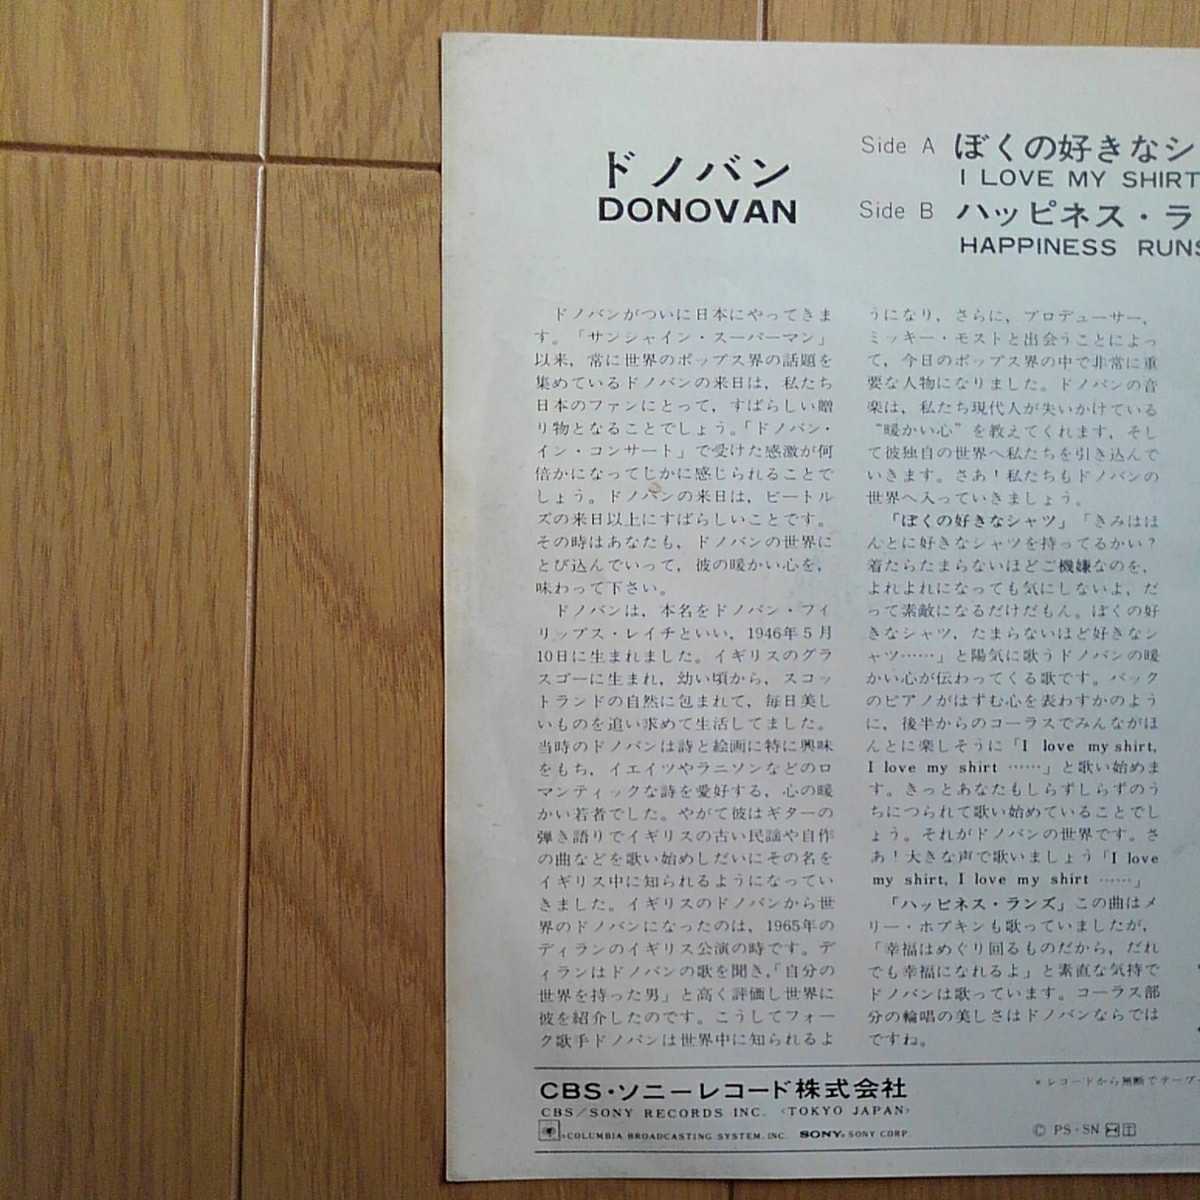 ドノバン
DONOVAN
Side A ぼくの好きなシ
I LOVE MY SHIRT
Side B ハッピネス・ラ
HAPPINESS RUNS
ドノバンがついに日本にやってきま
す。「サンシャイン・スーパーマン」
以来，常に世界のポップス界の話題を
集めているドノバンの来日は，私たち
日本のファンにとって，すばらしい贈
り物となることでしょう。「ドノバン・
イン・コンサート」で受けた感激が何
倍かになってじかに感じられることで
しょう。ドノバンの来日は，ビートル
ズの来日以上にすばらしいことです。
その時はあなたも，ドノバンの世界に
とび込んでいって，彼の暖かい心を，
味わって下さい。
ドノバンは，本名をドノバン・フィ
リップス・レイチといい，1946年5月
10日に生まれました。イギリスのグラ
スゴーに生まれ，幼い頃から，スコッ
トランドの自然に包まれて，毎日美し
いものを追い求めて生活してました。
当時のドノバンは詩と絵画に特に興味
をもち，イエイツやラニソンなどのロ
マンティックな詩を愛好する，心の暖
かい若者でした。やがて彼はギターの
弾き語りでイギリスの古い民謡や自作
の曲などを歌い始めしだいにその名を
イギリス中に知られるようになってい
きました。イギリスのドノバンから世
界のドノバンになったのは，1965年の
ディランのイギリス公演の時です。デ
ィランはドノバンの歌を聞き，「自分の
世界を持った男」と高く評価し世界に
彼を紹介したのです。こうしてフォー
ク歌手ドノバンは世界中に知られるよ
うになり，さらに，プロデューサー，
ミッキー・モストと出会うことによっ
て，今日のポップス界の中で非常に重
要な人物になりました。ドノバンの音
楽は，私たち現代人が失いかけている
“暖かい心”を教えてくれます，そし
て彼独自の世界へ私たちを引き込んで
いきます。さあ！私たちもドノバンの
世界へ入っていきましょう。
「ぼくの好きなシャツ」「きみはほ
んとに好きなシャツを持ってるかい？
着たらたまらないほどご機嫌なのを，
よれよれになっても気にしないよ，だ
って素敵になるだけだもん。ぼくの好
きなシャツ，たまらないほど好きなシ
ャツ……」と陽気に歌うドノバンの暖
かい心が伝わってくる歌です。バック
のピアノがはずむ心を表わすかのよう
に，後半からのコーラスでみんながほ
んとに楽しそうに「I love my shirt,
I love my shirt ……」と歌い始めま
す。きっとあなたもしらずしらずのう
ちにつられて歌い始めていることでし
ょう。それがドノバンの世界です。さ
あ！大きな声で歌いましょう「I love
my shirt, I love my shirt ……」
「ハッピネス・ランズ」この曲はメ
リー・ホプキンも歌っていましたが，
「幸福はめぐり回るものだから，だれ
でも幸福になれるよ」と素直な気持で
ドノバンは歌っています。コーラス部
分の輪唱の美しさはドノバンならでは
ですね。
CBS・ソニーレコード株式会社
CBS/SONY RECORDS INC. 〈TOKYO JAPAN〉
®COLUMBIA BROADCASTING SYSTEM, INC. SONY® SONY CORP.
＊レコードから無断でテープ
Ⓒ PS・SN